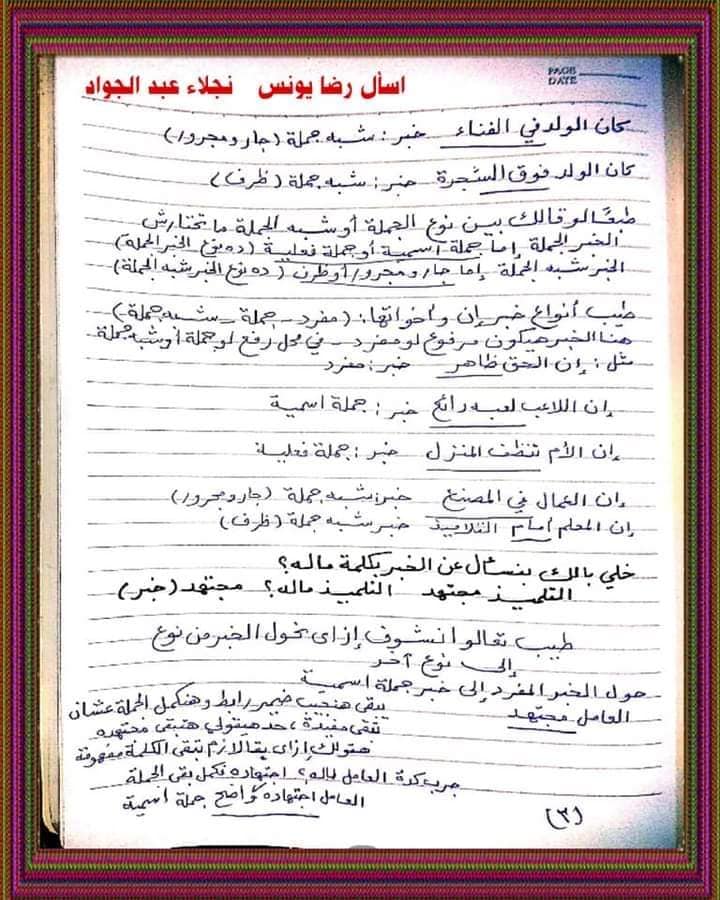 اسأل رضا يونس   نجلاء عبد الجواد
PAGE
DATE
كان الولد في الفناء   خبر : شبه جملة (جار ومجرور)
كان الولد فوق الشجرة   خبر : شبه جملة (ظرف)
طبعًا لو قالك بين نوع الجملة أو شبه الجملة ما تختارش
الخبر الجملة إما جملة اسمية أو جملة فعلية (ده نوع الخبر الجملة)
الخبر شبه الجملة إما جار ومجرور أو ظرف (ده نوع الخبر شبه الجملة)
طيب أنواع خبر إن وأخواتها : (مفرد - جملة - شبه جملة)
هنا الخبر هيكون مرفوع لو مفرد - في محل رفع لو جملة أو شبه جملة
مثل : إن الحق ظاهر   خبر : مفرد
إن اللاعب لعبه رائع   خبر : جملة اسمية
إن الأم تنظف المنزل   خبر : جملة فعلية
إن العمال في المصنع   خبر : شبه جملة (جار ومجرور)
إن المعلم أمام التلاميذ   خبر شبه جملة (ظرف)
خلي بالك بنسأل عن الخبر بكلمة ماله ؟
التلميذ مجتهد   التلميذ ماله ؟ مجتهد (خبر)
طيب تعالوا نشوف إزاى نحول الخبر من نوع
إلى نوع آخر
حول الخبر المفرد إلى خبر جملة اسمية
العامل مجتهد
يبقى هنجيب ضمير رابط وهنكمل الجملة عشان
تبقى مفيدة ، حد هيقولي هتبقى مجتهده
هقولك إزاى بقا لازم تبقى الكلمة مفهومة
جرب كدة العامل ماله ؟ اجتهاده نكمل بقى الجملة
العامل اجتهاده واضح جملة اسمية
(٣)